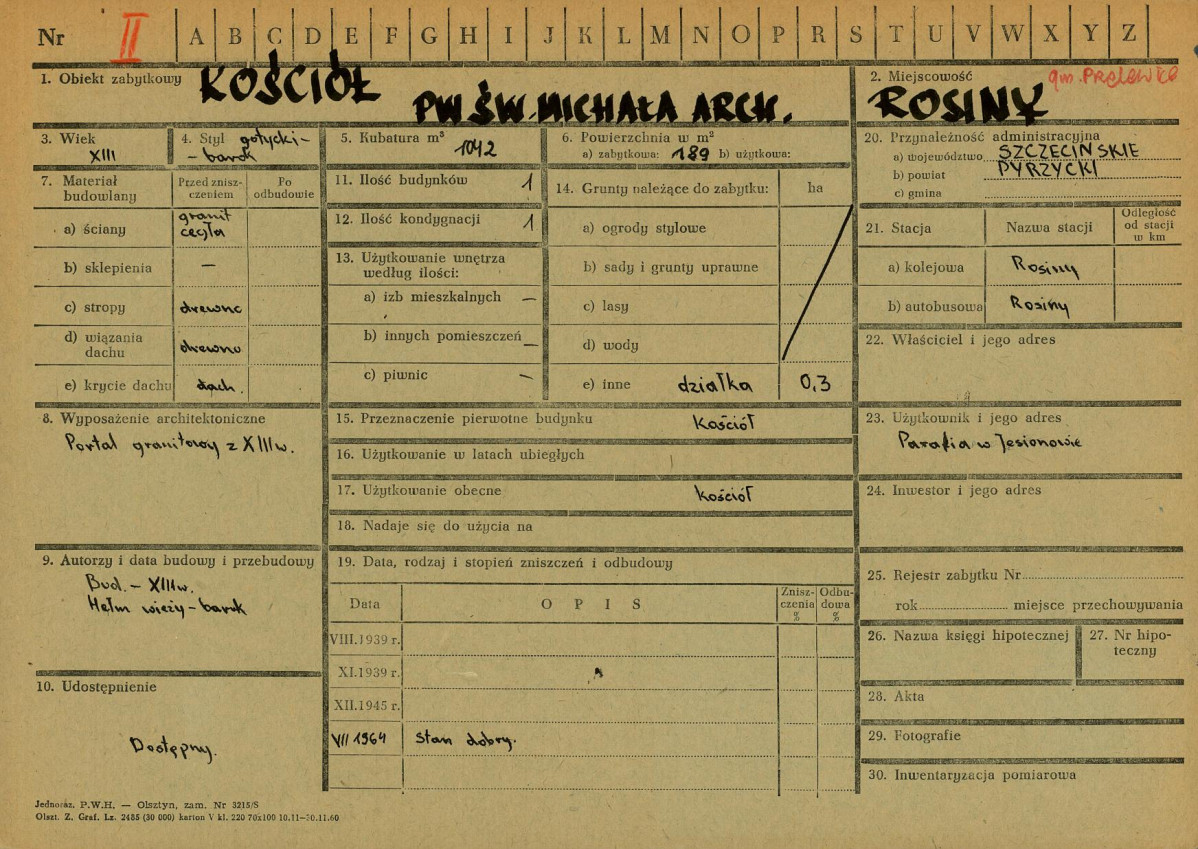 Nr II A B C D E F G H I J K L M N O P R S T U V W X Y Z
1. Obiekt zabytkowy KOŚCIÓŁ
PW ŚW. MICHAŁA ARCH.
2. Miejscowość
ROSINY
3. Wiek
XIII
4. Styl gotycki-
- barok
5. Kubatura m³ 1042
6. Powierzchnia w m²
a) zabytkowa: 189 b) użytkowa:
7. Materiał budowlany
Przed zniszczeniem
Po odbudowie
a) ściany granit cegła
b) sklepienia —
c) stropy drewno
d) wiązania dachu drewno
e) krycie dachu dach.
8. Wyposażenie architektoniczne
Portal granitowy z XIII w.
9. Autorzy i data budowy i przebudowy
Bud. – XIII w.
Hełm wieży – barok
10. Udostępnienie
Dostępny.
11. Ilość budynków 1
12. Ilość kondygnacji 1
13. Użytkowanie wnętrza
według ilości:
a) izb mieszkalnych —
b) innych pomieszczeń —
c) piwnic —
14. Grunty należące do zabytku: ha
a) ogrody stylowe
b) sady i grunty uprawne
c) lasy
d) wody
e) inne działka 0,3
15. Przeznaczenie pierwotne budynku Kościół
16. Użytkowanie w latach ubiegłych
17. Użytkowanie obecne Kościół
18. Nadaje się do użycia na
19. Data, rodzaj i stopień zniszczeń i odbudowy
Data OPIS Zniszczenia % Odbudowa %
VIII.1939 r.
XI.1939 r.
XII.1945 r.
VII 1964 Stan dobry.
20. Przynależność administracyjna
a) województwo SZCZECIŃSKIE
b) powiat PYRZYCKI
c) gmina
21. Stacja Nazwa stacji Odległość od stacji w km
a) kolejowa Rosiny
b) autobusowa Rosiny
22. Właściciel i jego adres
23. Użytkownik i jego adres
Parafia w Jesionowie
24. Inwestor i jego adres
25. Rejestr zabytku Nr
rok miejsce przechowywania
26. Nazwa księgi hipotecznej
27. Nr hipoteczny
28. Akta
29. Fotografie
30. Inwentaryzacja pomiarowa
Jednoraz. P.W.H. — Olsztyn, zam. Nr 3215/S
Olszt. Z. Graf. Lz. 2485 (30 000) karton V kl. 220 70x100 10.11—30.11.60